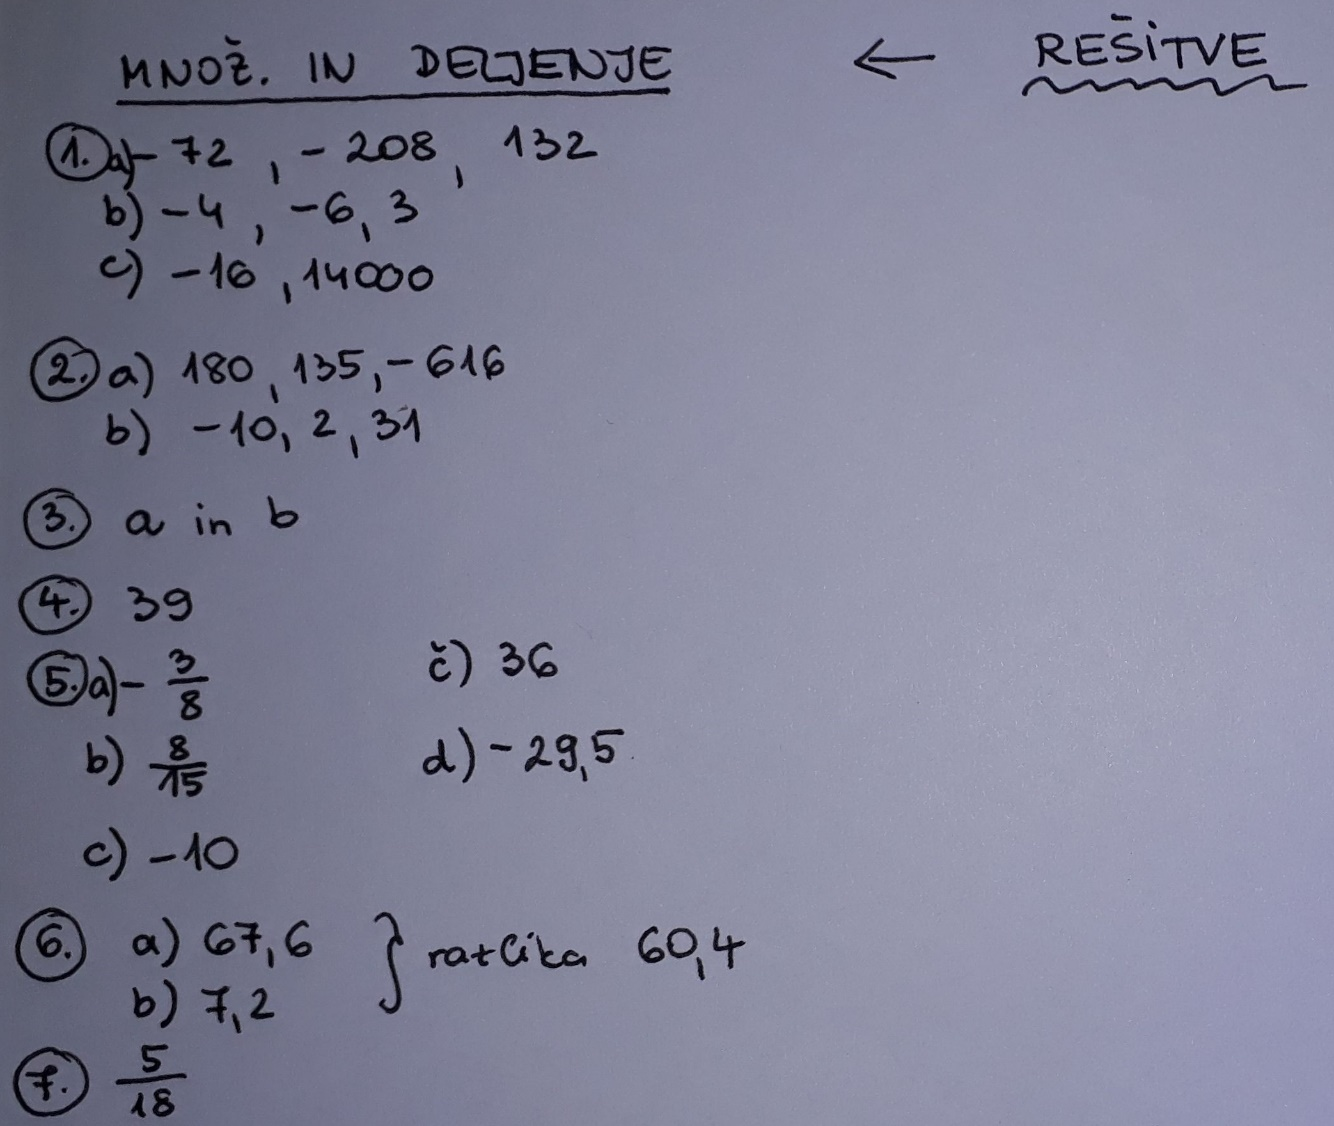 MNOŽ. IN DELJENJE ← REŠITVE
1. a) -72, -208, 132
b) -4, -6, 3
c) -16, 14000
2. a) 180, 135, -616
b) -10, 2, 31
3. a in b
4. 39
5. a) - 3/8 č) 36
b) 8/15 d) -29,5
c) -10
6. a) 67,6 } razlika 60,4
b) 7,2
7. 5/18